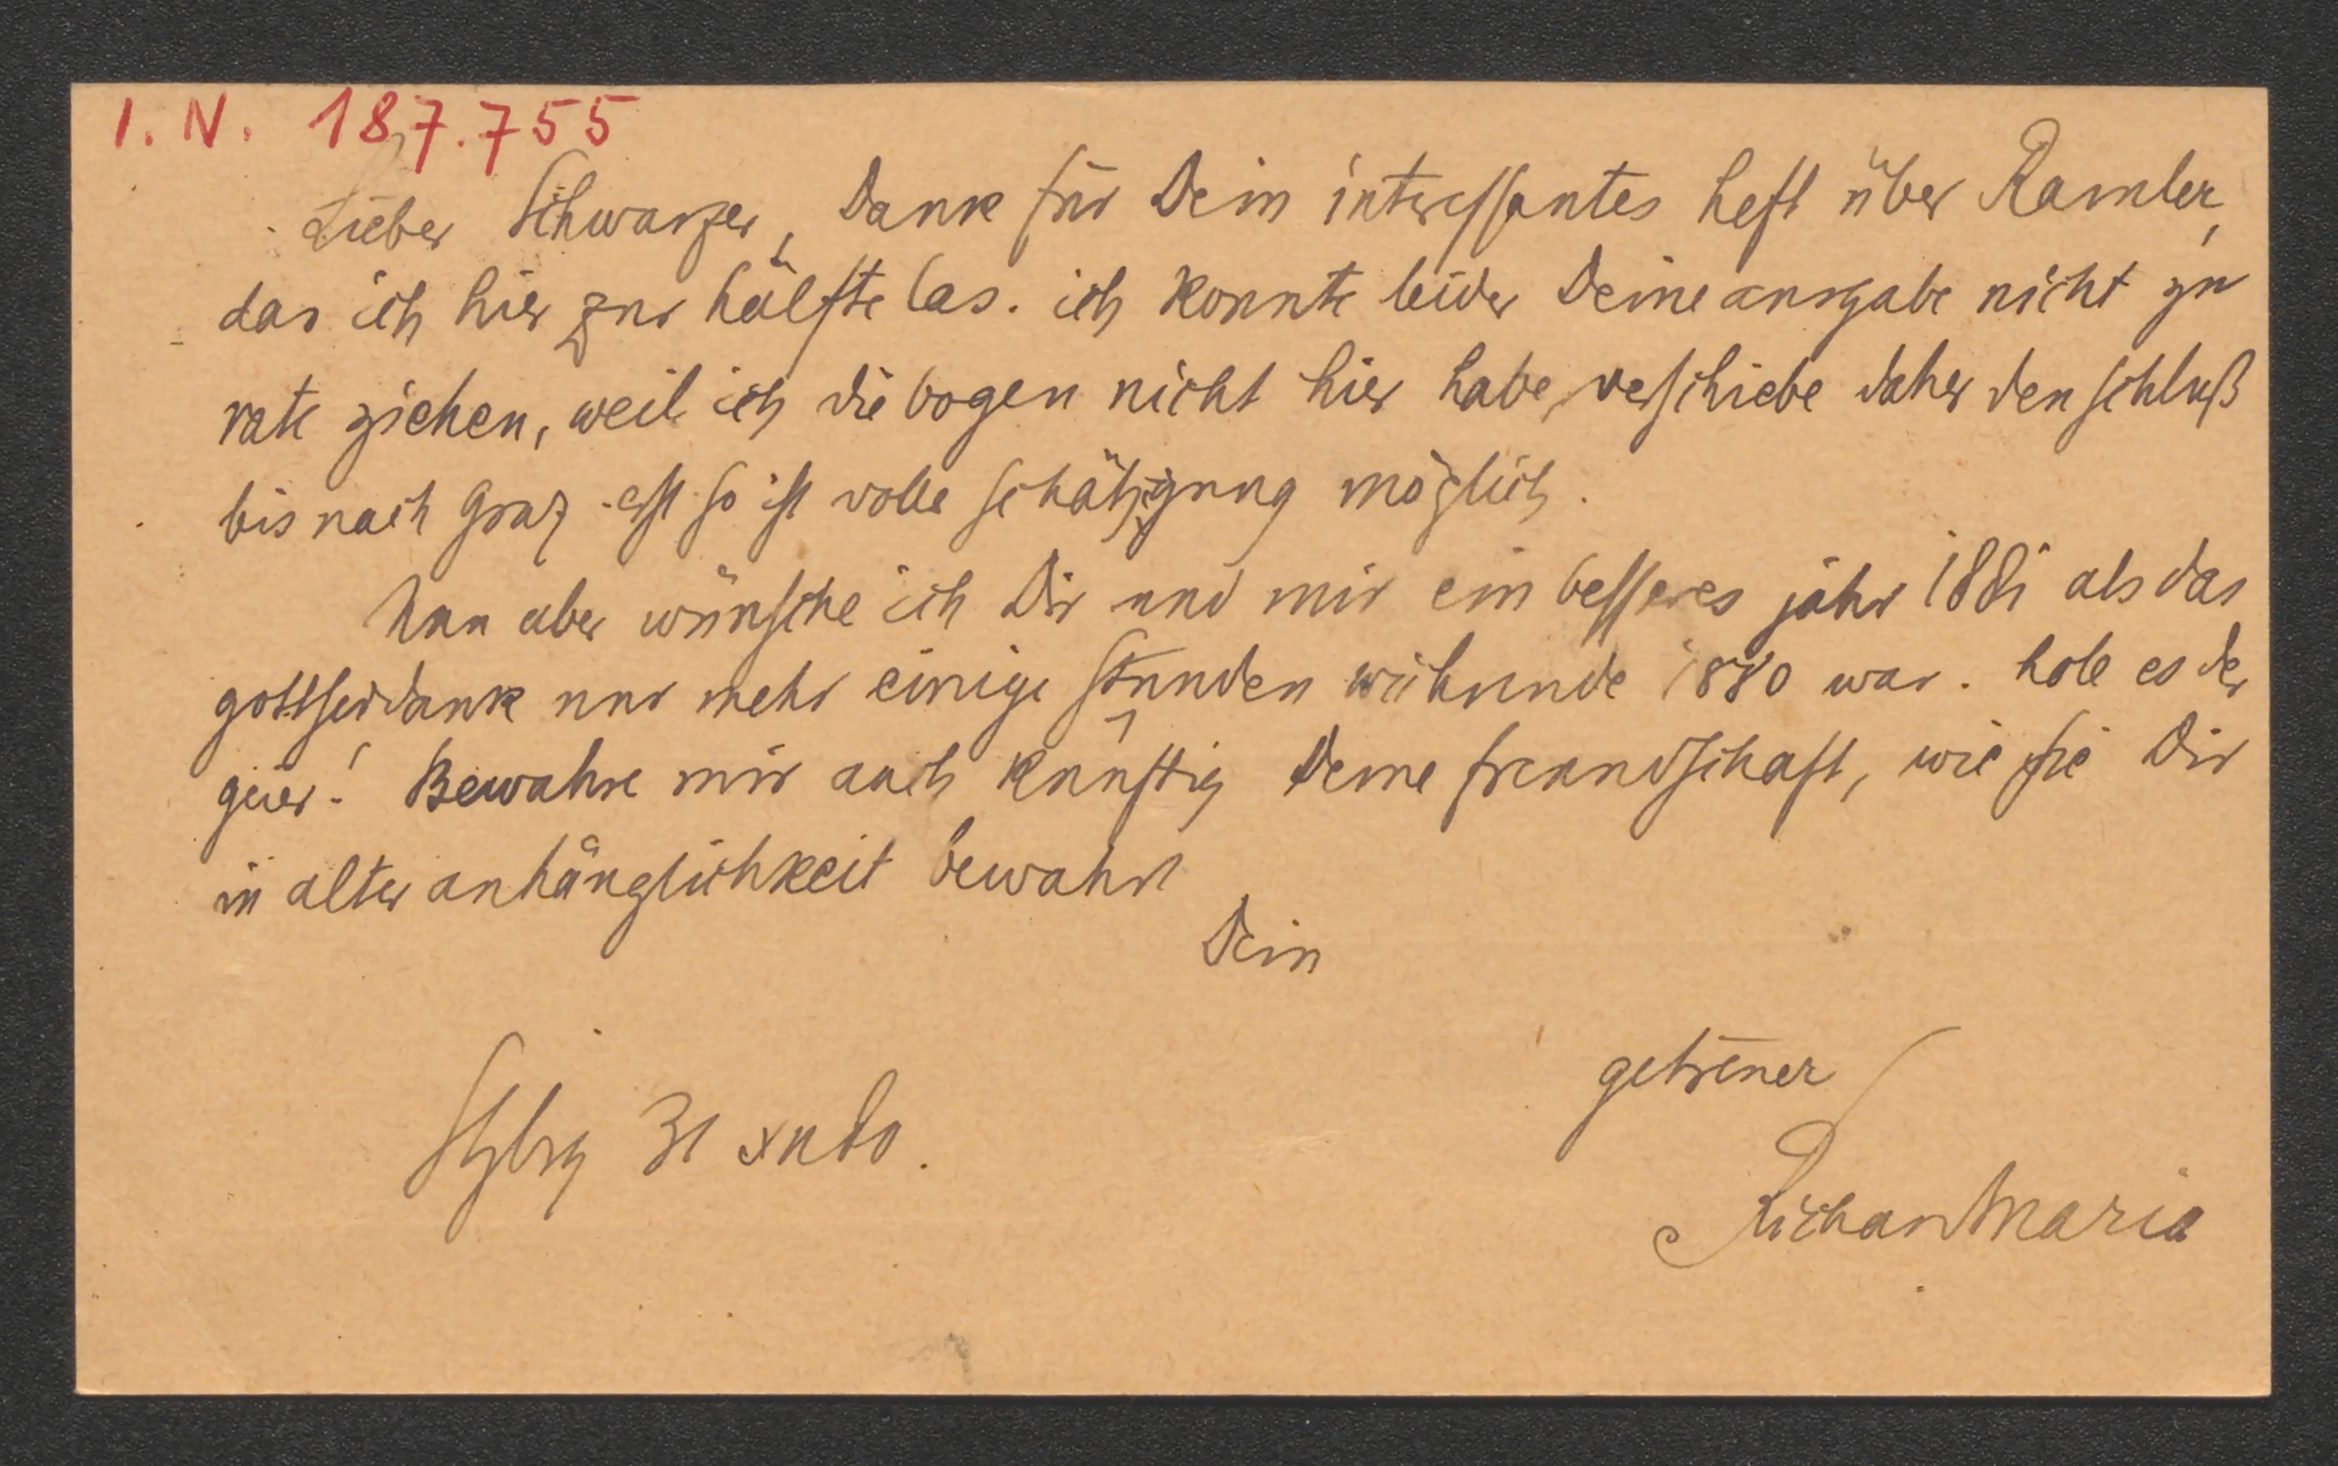 I. N. 187.755
Lieber Schwarzer, Dank für Dein interessantes heft über Ramler,
das ich hier zur hälfte las. ich konnte leider Deine ausgabe nicht zu
rate ziehen, weil ich die bogen nicht hier habe, verschiebe daher den schluß
bis nach Graz. erst so ist volle schätzung möglich.
Nun aber wünsche ich Dir und mir ein besseres jahr 1881 als das
gottseidank nur mehr einige stunden während 1880 war. hole es der
geier! Bewahre mir auch künftig Deine freundschaft, wie sie Dir
in alter anhänglichkeit bewahrt
Dein
getreuer
Szbrg 31 XII 80.
RichardMaria